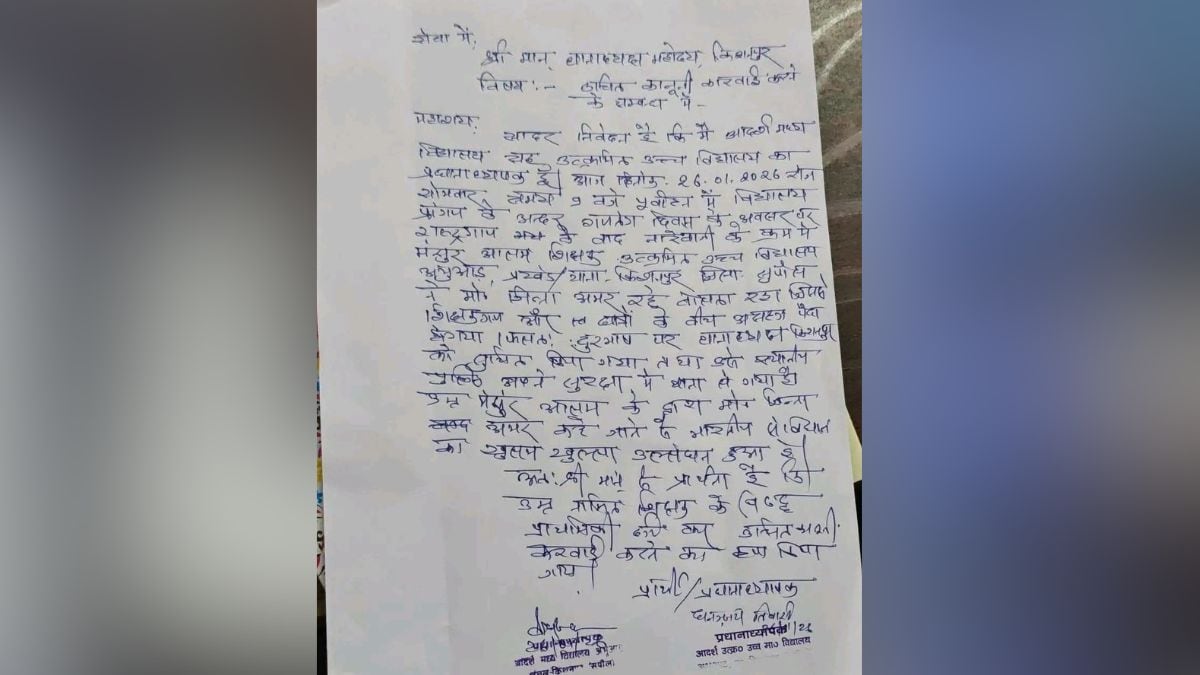 सेवा में,
श्री मान् थानाध्यक्ष महोदय, किशनपुर
विषय :- उचित कानूनी कारवाई करने
के सम्बन्ध में -
महाशय,
सादर निवेदन है कि मैं आदर्श मध्य
विद्यालय सह उत्क्रमित उच्च विद्यालय का
प्रधानाध्यापक हूँ। आज दिनांक 26.01.2026 रोज
सोमवार समय 9 बजे पूर्वाहन में विद्यालय
प्रांगण के अन्दर गणतंत्र दिवस के अवसर पर
राष्ट्रगान के बाद नारेबाजी के क्रम में
मंसुर आलम शिक्षक उत्क्रमित उच्च विद्यालय
प्रखंड/थाना- किशनपुर जिला सुपौल
ने मो० जिन्ना अमर रहे बोलता रहा जिससे
शिक्षकगण और छात्रों के बीच पैदा
हो गया। फलतः दुरभाष पर थानाध्यक्ष किशनपुर
को सुचित किया गया तथा उसे स्थानीय
पुलिस अपने सुरक्षा में थाना ले गया है।
उक्त मंसुर आलम के द्वारा मो० जिन्ना
अमर कहे जाने से भारतीय संविधान
का खुलम खुल्ला उल्लंघन हुआ है।
अतः श्री मान् से प्रार्थना है कि
उक्त शिक्षक के विरुद्ध
प्राथमिकी दर्ज कर उचित
करवाई करने का कृपा किया
जाय।
प्रार्थी/प्रधानाध्यापक
धनञ्जय तिवारी
प्रधानाध्यापक
आदर्श उत्क्र० उच्च मा० विद्यालय
आदर्श मध्य विद्यालय